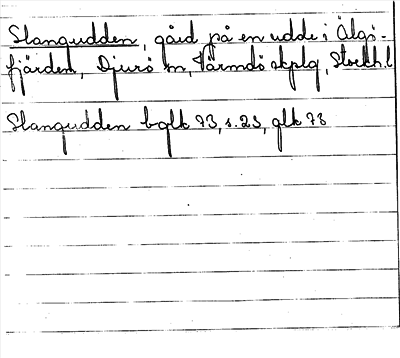 Slangudden, gård på en udde i Älgö-
fjärden, Djurö sn, Värmdö skplg, Stockh.l
Slangudden bglk 73, s. 23, glk 73